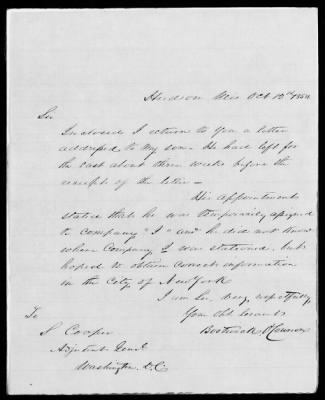 Hudson Wis Oct 12th 1854
Sir
Inclosed I return to you a letter
addressed to my son. He had left for
the east about three weeks before the
receipt of the letter —
His appointment
stated that he was temporarily assigned
to company "I" and he did not know
where Company I was stationed, but
hoped to obtain correct information
in the City of New York
I am Sir very respectfully
Your Obt Servant
Bostwick O'Connor
To
S Cooper
Adjutant Genl
Washington D.C